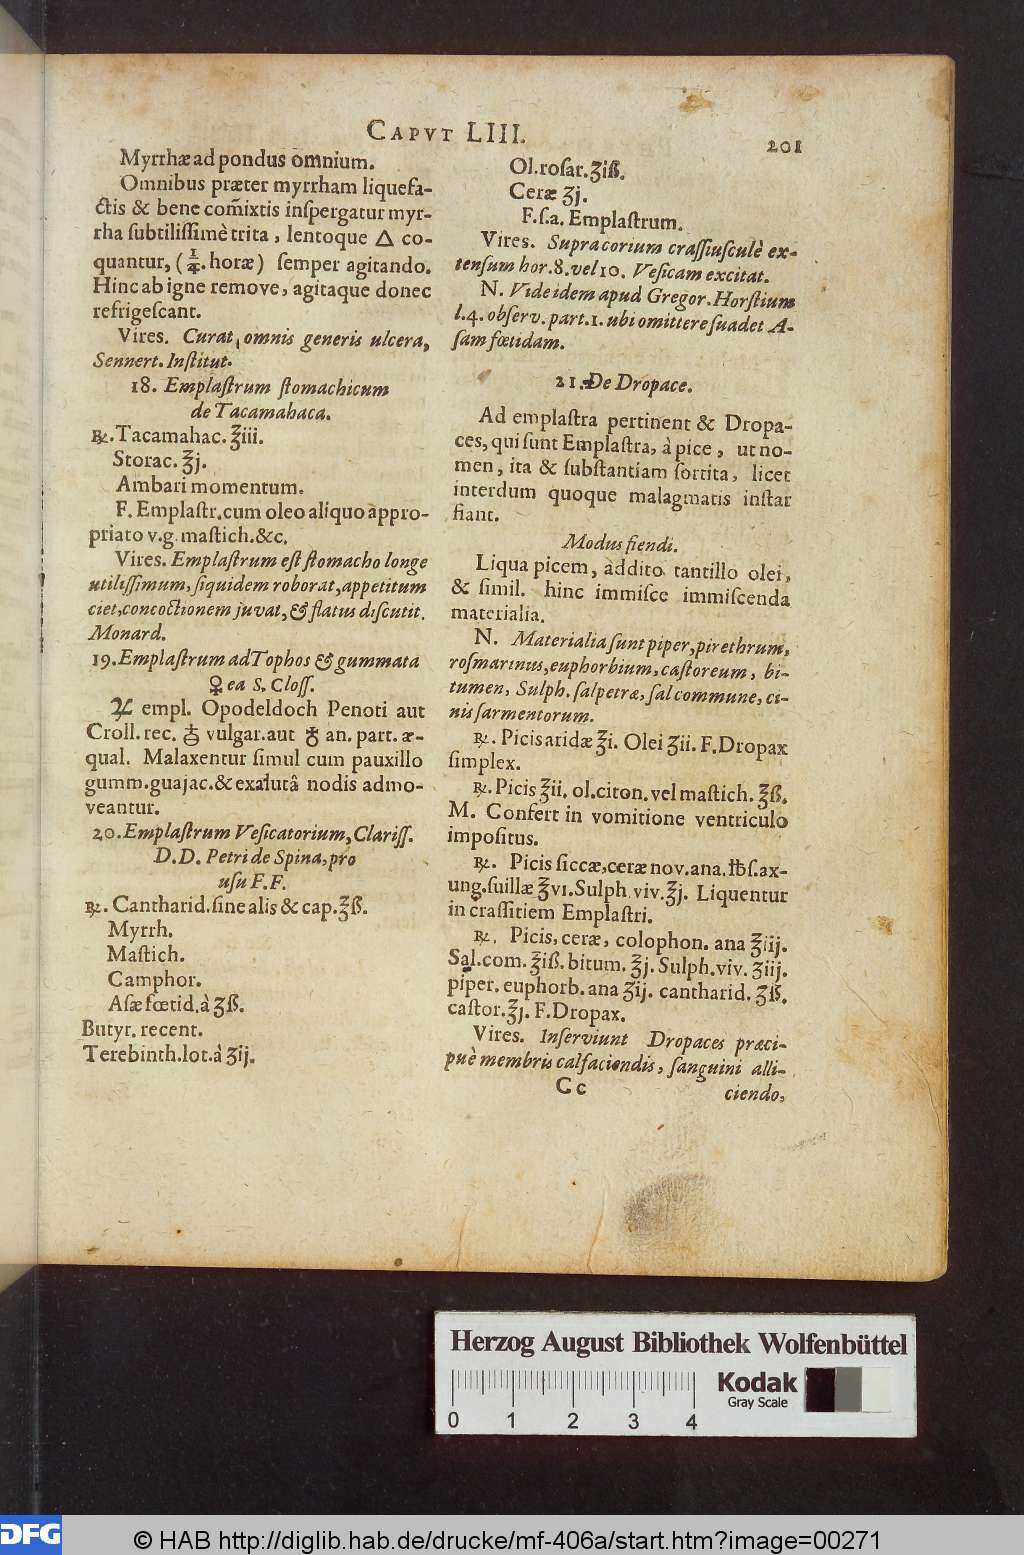 CAPVT LIII.
201
Myrrhæ ad pondus omnium.
Omnibus præter myrrham liquefa-
ctis & bene com̃ixtis inſpergatur myr-
rha ſubtiliſſimè trita, lentoque △ co-
quantur, (1/4. horæ) ſemper agitando.
Hinc ab igne remove, agitaque donec
refrigeſcant.
Vires. Curat omnis generis ulcera,
Sennert. Inſtitut.
18. Emplaſtrum ſtomachicum
de Tacamahaca.
℞. Tacamahac. ℥iii.
Storac. ℥j.
Ambari momentum.
F. Emplaſtr. cum oleo aliquo appro-
priato v.g. maſtich. &c.
Vires. Emplaſtrum eſt ſtomacho longe
utiliſſimum, ſiquidem roborat, appetitum
ciet, concoctionem juvat, & flatus diſcutit.
Monard.
19. Emplaſtrum ad Tophos & gummata
♀ea S. Cloſſ.
empl. Opodeldoch Penoti aut
Croll. rec. ♁ vulgar. aut an. part. æ-
qual. Malaxentur ſimul cum pauxillo
gumm. guajac. & exalutâ nodis admo-
veantur.
20. Emplaſtrum Veſicatorium, Clariſſ.
D.D. Petri de Spina, pro
uſu F.F.
℞. Cantharid. ſine alis & cap. ℥ß.
Myrrh.
Maſtich.
Camphor.
Aſæ fœtid. à ʒß.
Butyr. recent.
Terebinth. lot. à ʒij.
Ol. roſar. ʒiß.
Ceræ ʒj.
F. ſ. a. Emplaſtrum.
Vires. Supra corium craſſiuſculè ex-
tenſum hor. 8. vel 10. Veſicam excitat.
N. Vide idem apud Gregor. Horſtium
l. 4. obſerv. part. 1. ubi omittere ſuadet A-
ſam fœtidam.
21. De Dropace.
Ad emplaſtra pertinent & Dropa-
ces, qui ſunt Emplaſtra, à pice, ut no-
men, ita & ſubſtantiam ſortita, licet
interdum quoque malagmatis inſtar
fiant.
Modus fiendi.
Liqua picem, addito tantillo olei,
& ſimil. hinc immiſce immiſcenda
materialia.
N. Materialia ſunt piper, pirethrum,
roſmarinus, euphorbium, caſtoreum, bi-
tumen, Sulph. ſalpetræ, ſal commune, ci-
nis ſarmentorum.
℞. Picis aridæ ℥i. Olei ℥ii. F. Dropax
ſimplex.
℞. Picis ℥ii. ol. citon. vel maſtich. ℥ß.
M. Confert in vomitione ventriculo
impoſitus.
℞. Picis ſiccæ, ceræ nov. ana. ℔ſ. ax-
ung. ſuillæ ℥vi. Sulph. viv. ℥j. Liquentur
in craſſitiem Emplaſtri.
℞. Picis, ceræ, colophon. ana ℥iij.
Sal. com. ℥iß. bitum. ℥j. Sulph. viv. ʒiij.
piper. euphorb. ana ʒij. cantharid. ʒß.
caſtor. ℥j. F. Dropax.
Vires. Inſerviunt Dropaces præci-
puè membris calfaciendis, ſanguini alli-
Cc
ciendo,
Herzog August Bibliothek Wolfenbüttel
0 1 2 3 4
Kodak
Gray Scale
DFG
© HAB http://diglib.hab.de/drucke/mf-406a/start.htm?image=00271